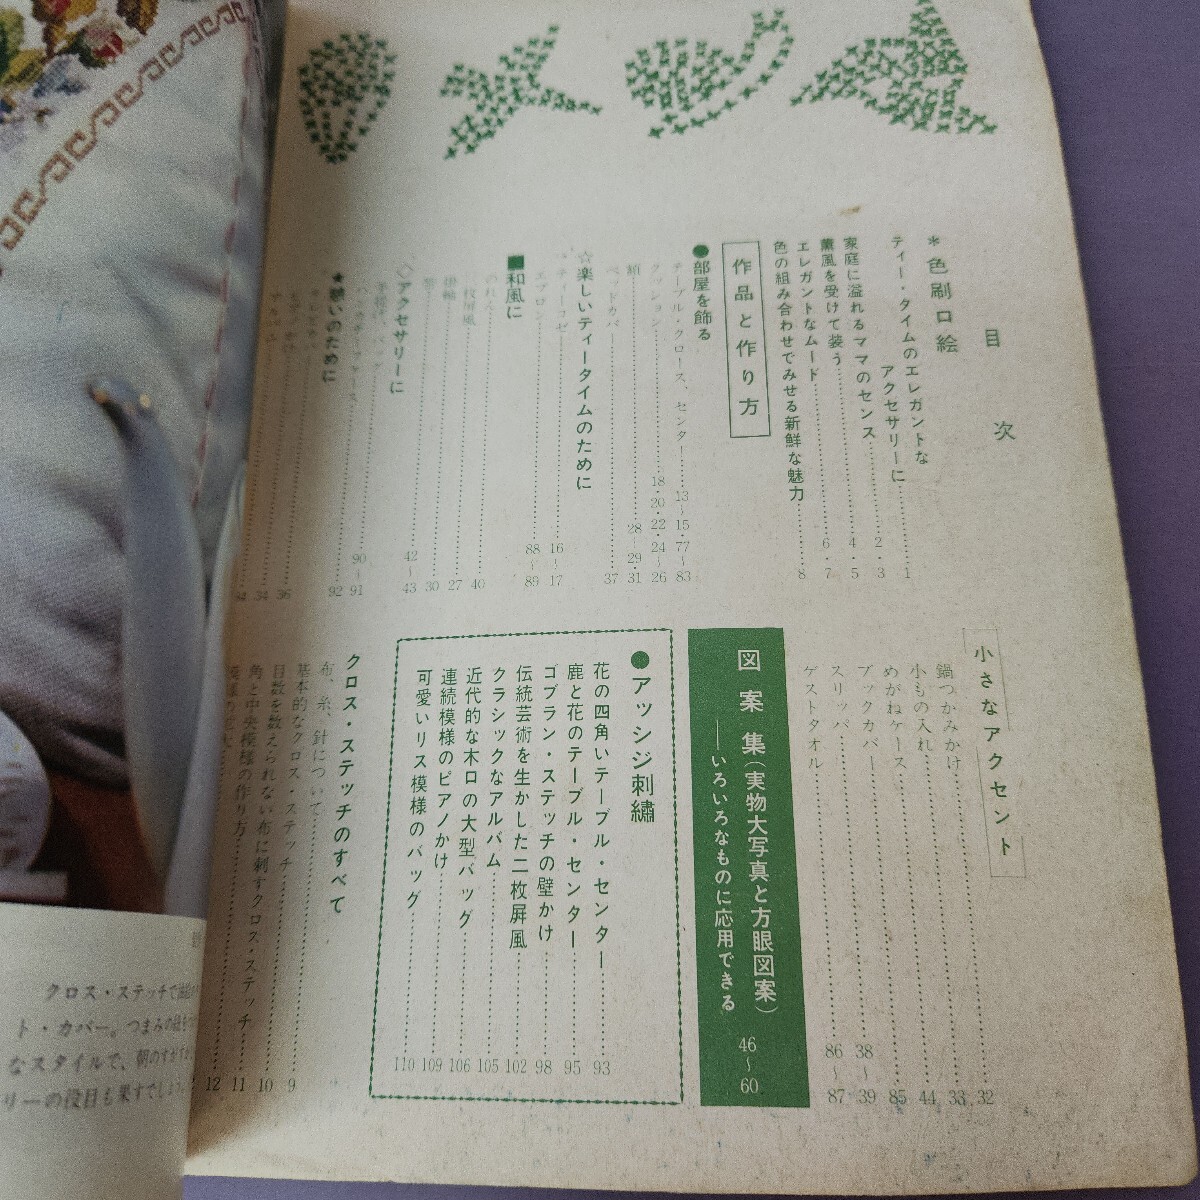 目次
＊色刷口絵
ティー・タイムのエレガントな
アクセサリーに……1
家庭に溢れるママのセンス……2・3
薫風を受けて装う……4・5
エレガントなムード……6・7
色の組み合わせでみせる新鮮な魅力……8
作品と作り方
●部屋を飾る
テーブル・クロース、センター……13〜15・77〜83
クッション……18・20・22・24〜26
額……28〜29・31
ベッドカバー……37
☆楽しいティータイムのために
ティーコゼー……16〜17
エプロン……88〜89
■和風に
のれん……40
二枚屏風……27
掛軸……30
◇アクセサリーに
42〜43
90〜91
92
36
34
34
小さなアクセント
鍋つかみかけ……32
小もの入れ……33
めがねケース……44
ブックカバー……85
スリッパ……38〜39
ゲストタオル……86〜87
図案集（実物大写真と方眼図案）
──いろいろなものに応用できる 46〜60
●アッシジ刺繡
花の四角いテーブル・センター……93
鹿と花のテーブル・センター……95
ゴブラン・ステッチの壁かけ……98
伝統芸術を生かした二枚屛風……102
クラシックなアルバム……105
近代的な木口の大型バッグ……106
連続模様のピアノかけ……109
可愛いリス模様のバッグ……110
クロス・ステッチのすべて
布、糸、針について……9
基本的なクロス・ステッチ……10
目数を数えられない布に刺すクロス・ステッチ……11
角と中央模様の作り方……12
クロス・ステッチで
ト・カバー。つまみの
なスタイルで、朝の
リーの役目も果すでしょう